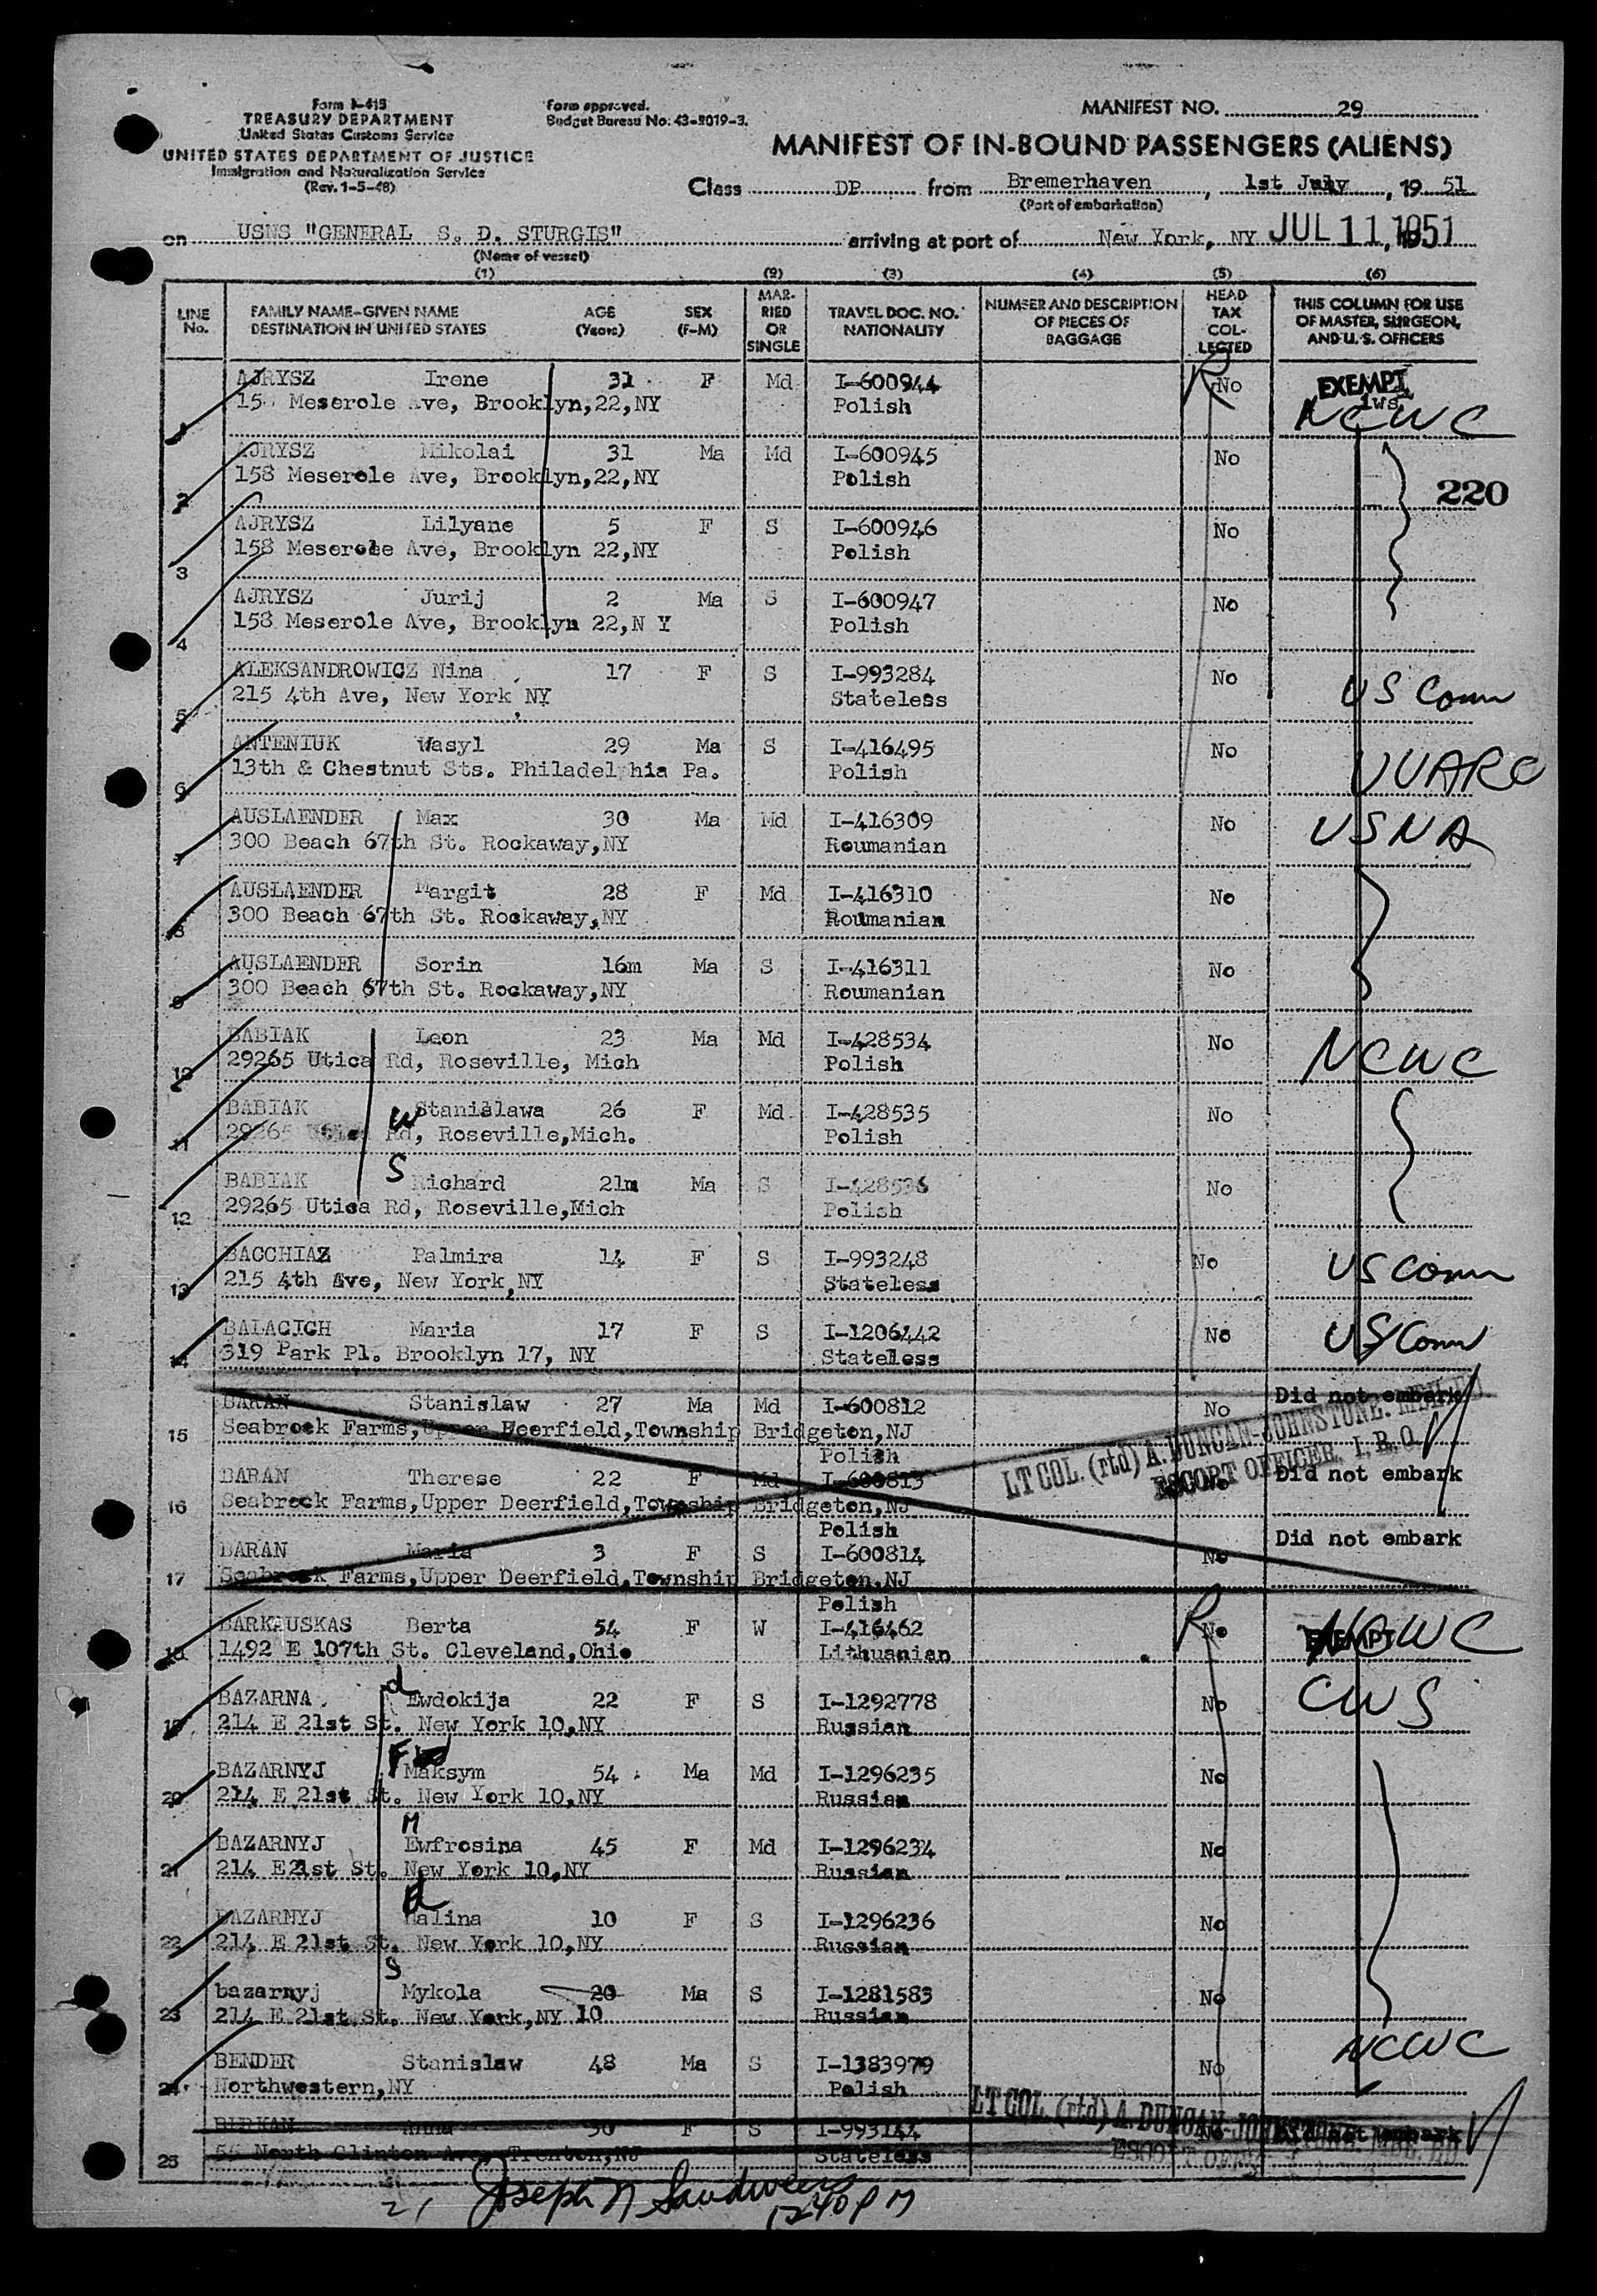 Form I-415
TREASURY DEPARTMENT
United States Customs Service
UNITED STATES DEPARTMENT OF JUSTICE
Immigration and Naturalization Service
(Rev. 1-5-48)
Form approved.
Budget Bureau No. 43-R019-3.
MANIFEST NO. 29
MANIFEST OF IN-BOUND PASSENGERS (ALIENS)
Class DP from Bremerhaven, 1st July, 19 51
(Port of embarkation)
on USNS "GENERAL S. D. STURGIS" arriving at port of New York, NY JUL 11, 1951
(Name of vessel)
(1) (2) (3) (4) (5) (6)
LINE No. FAMILY NAME-GIVEN NAME DESTINATION IN UNITED STATES AGE (Years) SEX (F-M) MARRIED OR SINGLE TRAVEL DOC. NO. NATIONALITY NUMBER AND DESCRIPTION OF PIECES OF BAGGAGE HEAD TAX COLLECTED THIS COLUMN FOR USE OF MASTER, SURGEON, AND U. S. OFFICERS
AJRYSZ Irene 31 F Md I-600944 R No EXEMPT iws
1 15 Meserole Ave, Brooklyn,22,NY Polish NCWC
AJRYSZ Mikolai 31 Ma Md I-600945 No
2 158 Meserole Ave, Brooklyn,22,NY Polish 220
AJRYSZ Lilyane 5 F S I-600946 No
3 158 Meserole Ave, Brooklyn 22,NY Polish
AJRYSZ Jurij 2 Ma S I-600947 No
4 158 Meserole Ave, Brooklyn 22,N Y Polish
ALEKSANDROWICZ Nina 17 F S I-993284 No
5 215 4th Ave, New York NY Stateless US Comm
ANTENIUK Wasyl 29 Ma S I-416495 No
6 13th & Chestnut Sts. Philadel hia Pa. Polish UUARC
AUSLAENDER Max 30 Ma Md I-416309 No USNA
7 300 Beach 67th St. Rockaway,NY Roumanian
AUSLAENDER Margit 28 F Md I-416310 No
8 300 Beach 67th St. Rockaway,NY Roumanian
AUSLAENDER Sorin 16m Ma S I-416311 No
9 300 Beach 67th St. Rockaway,NY Roumanian
BABIAK Leon 23 Ma Md I-428534 No NCWC
10 29265 Utica Rd, Roseville, Mich Polish
BABIAK W Stanislawa 26 F Md I-428535 No
11 29265 Utica Rd, Roseville,Mich. Polish
BABIAK S Richard 21m Ma S I-428536 No
12 29265 Utica Rd, Roseville,Mich Polish
BACCHIAZ Palmira 14 F S I-993248 No US Comm
13 215 4th Ave, New York,NY Stateless
BALACICH Maria 17 F S I-1206442 No US Comm
14 319 Park Pl. Brooklyn 17, NY Stateless
BARAN Stanislaw 27 Ma Md I-600812 No Did not embark
15 Seabrook Farms,Upper Deerfield,Township Bridgeton,NJ
Polish
LT COL. (rtd) A. DUNCAN-JOHNSTONE.
ESCORT OFFICER, I. R. O.
BARAN Therese 22 F Md I-600813 No Did not embark
16 Seabrook Farms,Upper Deerfield,Township Bridgeton,NJ
Polish
BARAN Maria 3 F S I-600814 No Did not embark
17 Seabrook Farms,Upper Deerfield,Township Bridgeton,NJ
Polish
BARKAUSKAS Berta 54 F W I-416462 R No EXEMPT NCWC
18 1492 E 107th St. Cleveland,Ohio Lithuanian
BAZARNA d Ewdokija 22 F S I-1292778 No CWS
19 214 E 21st St. New York 10,NY Russian
BAZARNYJ F Maksym 54 Ma Md I-1296235 No
20 214 E 21st St. New York 10,NY Russian
BAZARNYJ M Ewfrosina 45 F Md I-1296234 No
21 214 E21st St. New York 10,NY Russian
BAZARNYJ d Halina 10 F S I-1296236 No
22 214 E 21st St. New York 10,NY Russian
bazarnyj S Mykola 20 Ma S I-1281583 No
23 214 E 21st St. New York,NY 10 Russian
BENDER Stanislaw 48 Ma S I-1383979 No NCWC
24 Northwestern,NY Polish
LT COL. (rtd) A. DUNCAN-JOHNSTONE
BERKAN Anna 30 F S I-993144 No Did not embark
25 55 North Clinton Ave, Trenton,NJ Stateless
21 Joseph N Sandweiss
1240 PM